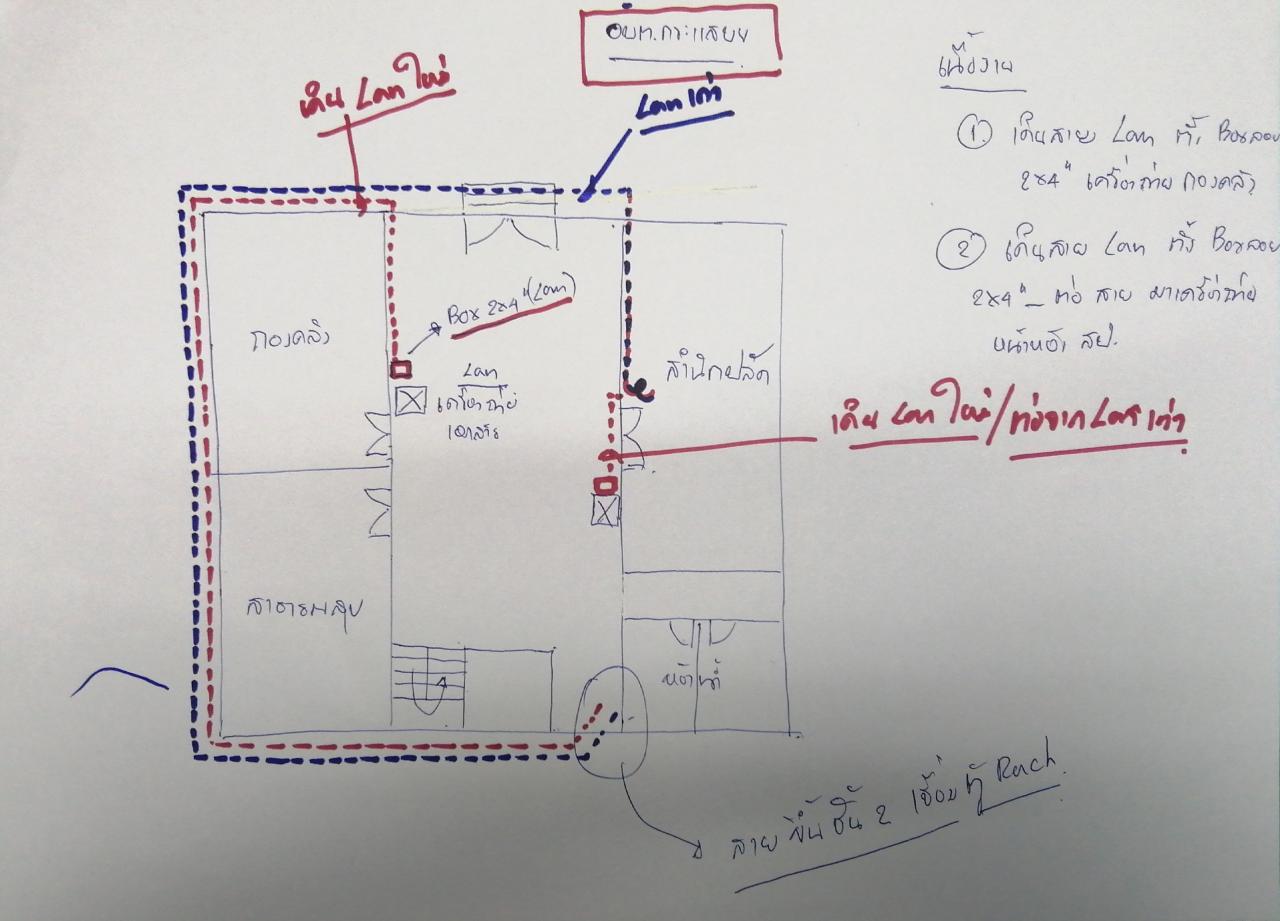 อบต.กระแสบน
เดิน Lan ใหม่
Lan เก่า
เนื้องาน
① เดินสาย Lan ทั้ง Box ลอย
2x4" เครื่องถ่าย กองคลัง
② เดินสาย Lan ทั้ง Box ลอย
2x4" ต่อ สาย มาเครื่องถ่าย
หน้าห้อง สป.
Box 2x4" (Lan)
กองคลัง
Lan
เครื่องถ่าย
เอกสาร
สำนักปลัด
เดิน Lan ใหม่/ต่อจาก Lan เก่า
สาธารณสุข
ห้องน้ำ
สาย ขึ้นชั้น 2 เชื่อมตู้ Rach.